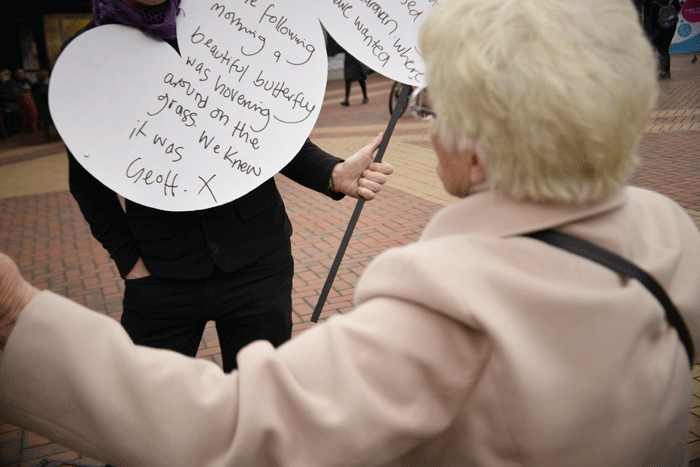 following
morning a
beautiful butterfly
was hovering
around on the
grass. We knew
it was
Geoff. X
wanted
where